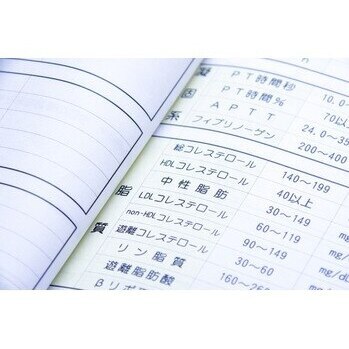 凝
PT時間秒 10.0
PT時間% 70以
因
APTT 24.0～35
系
フィブリノーゲン 200～400
総コレステロール 140～199
HDLコレステロール 40以上
中性脂肪 30～149
脂
LDLコレステロール 60～119
non-HDLコレステロール 90～149
質
遊離コレステロール 30～60
リン脂質 160～26
遊離脂肪酸
βリポ
mg/dL